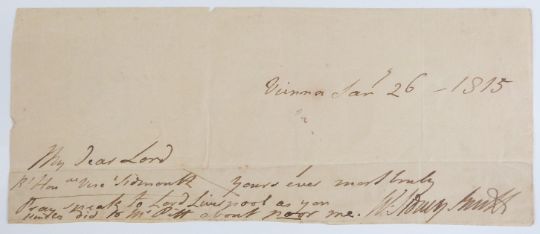 Vienna Jany 26 - 1815
My dear Lord
Rt Honble Visct Sidmouth yours ever most truly
Pray speak to Lord Liverpool as you
did to Mr Pitt about poor me. W Sidney Smith